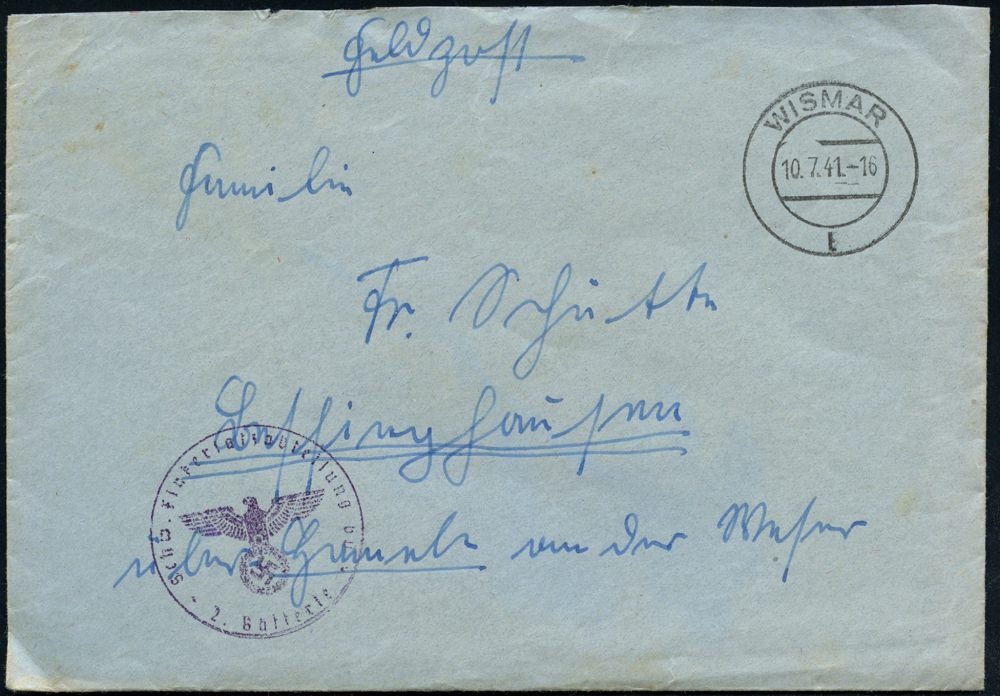 Feldpost
WISMAR
10.7.41.-16
t
Familie
Fr. Schütte
Bessinghausen
über Hameln an der Weser
Schw. Flakersatzabteilung
2. Batterie